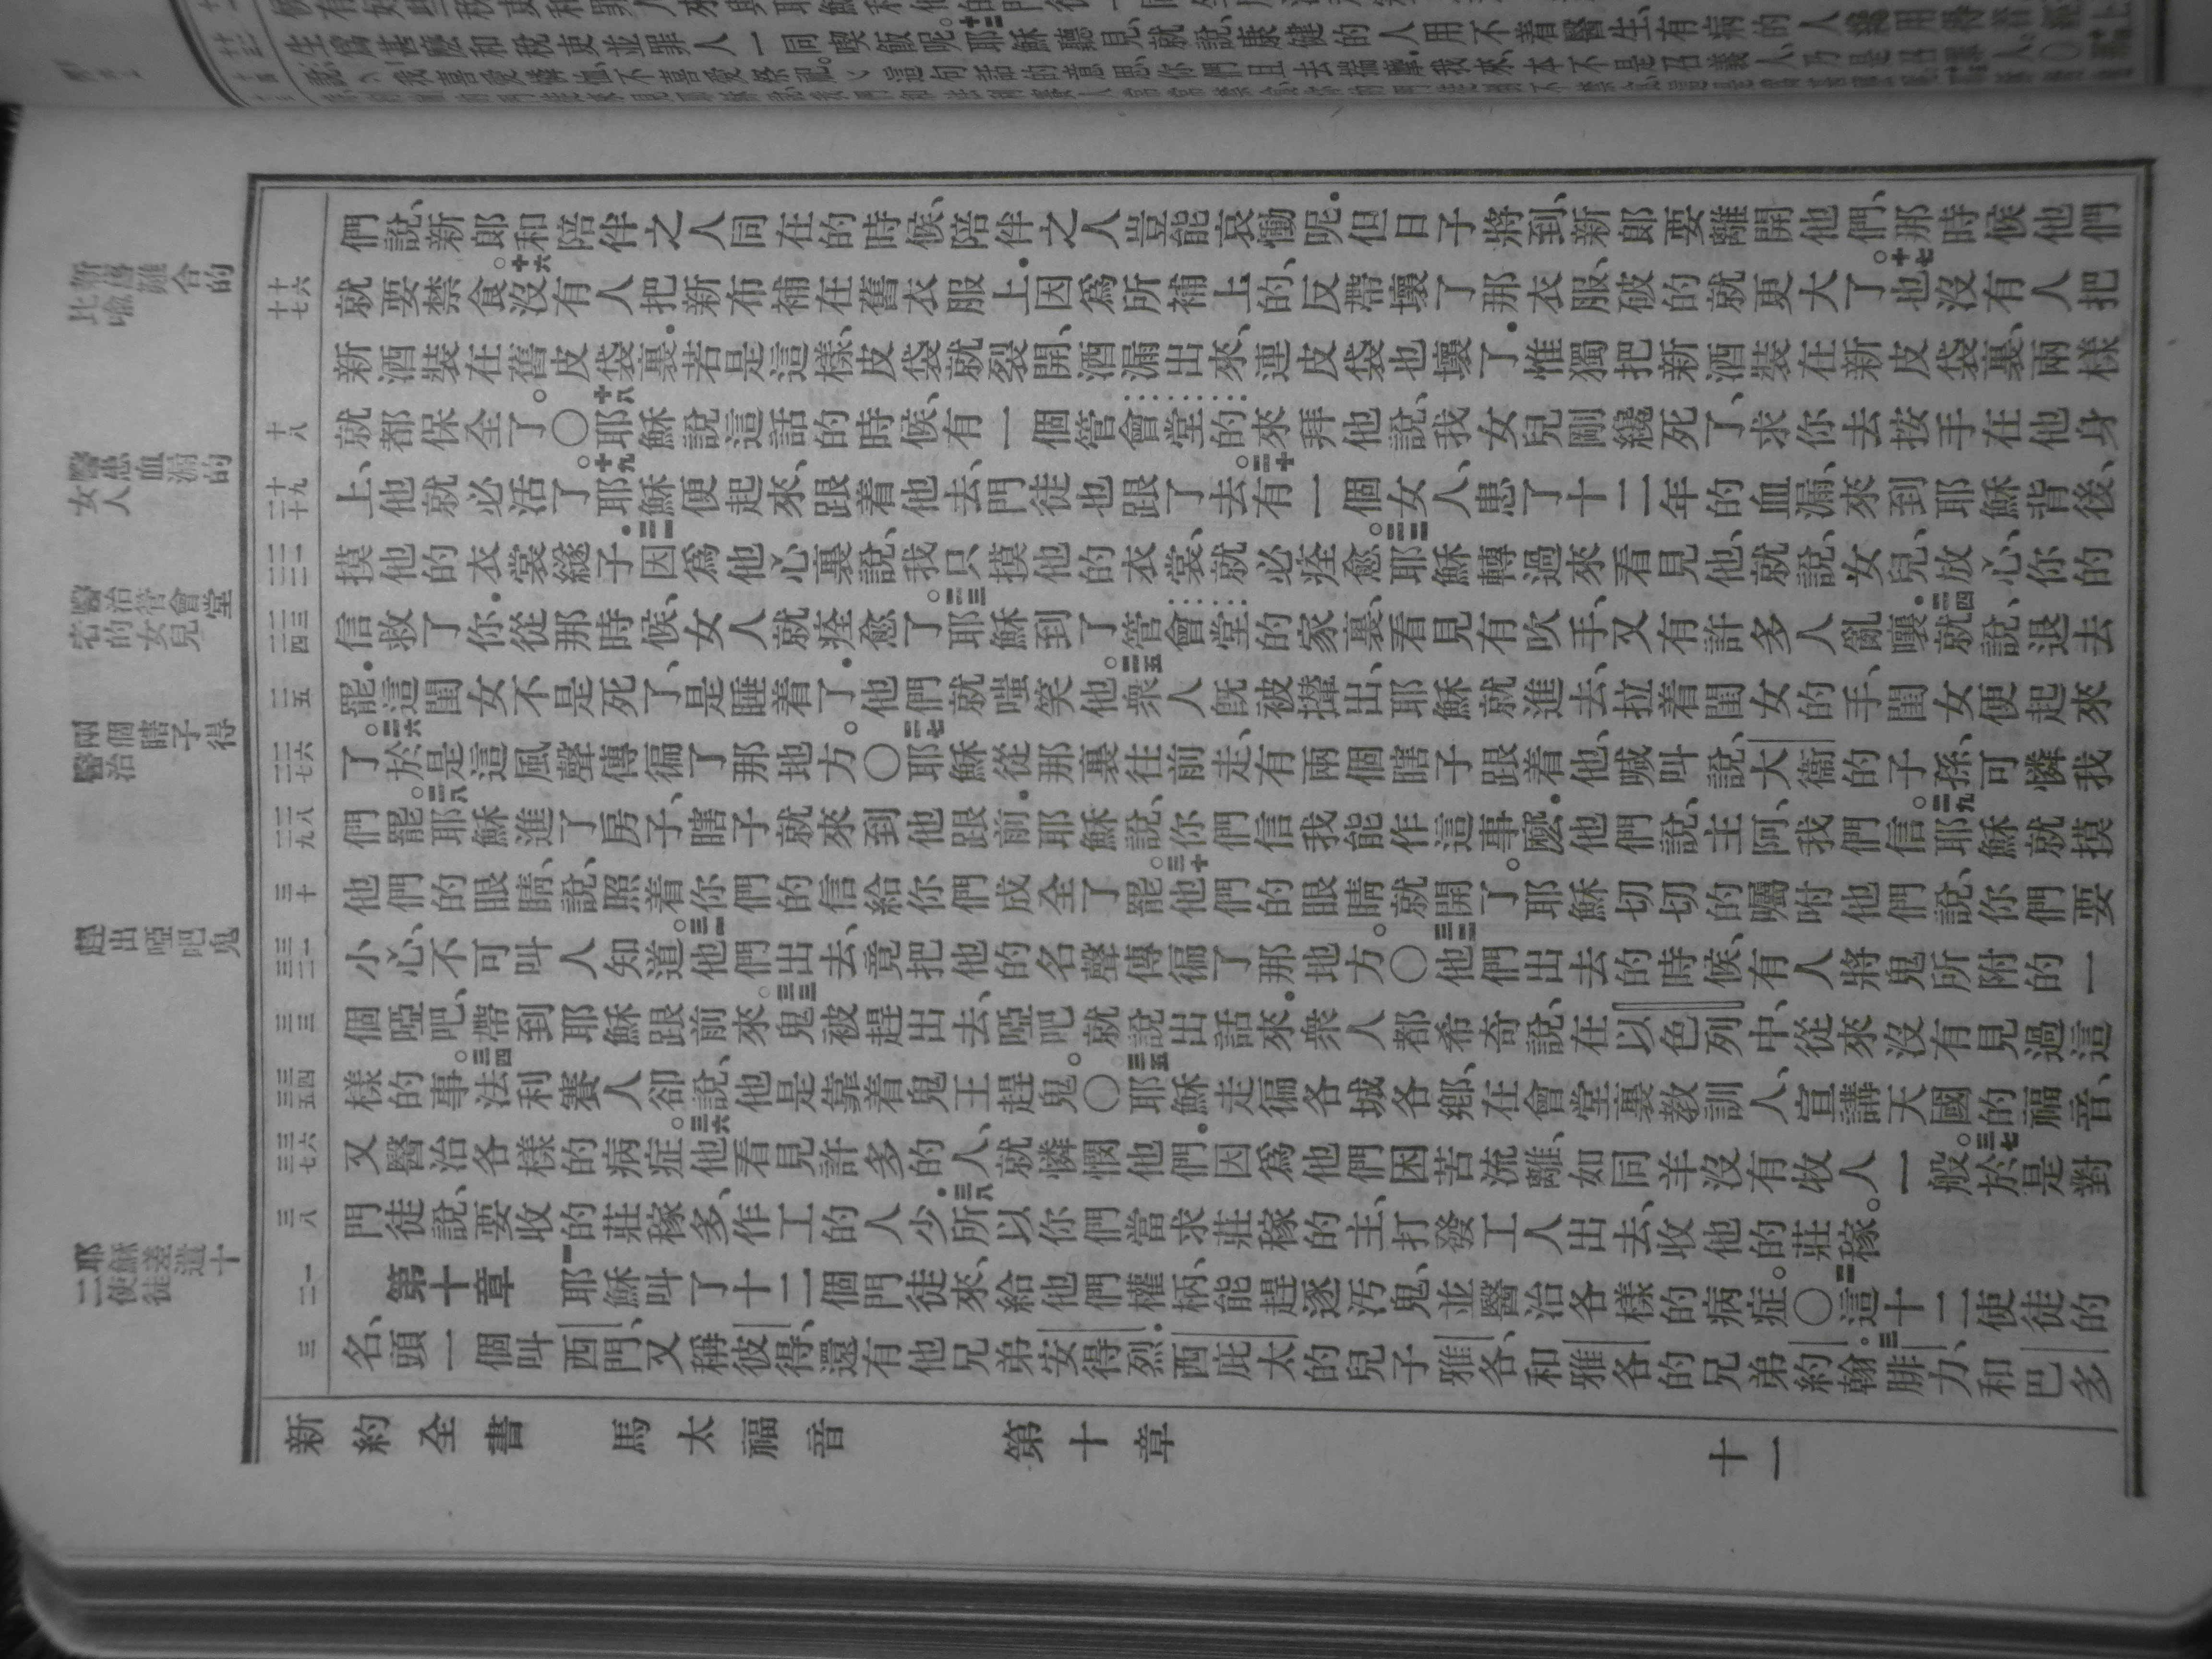 們說、新郎和陪伴之人同在的時候、陪伴之人豈能哀慟呢．但日子將到、新郎要離開他們、那時候他們
就要禁食。十六沒有人把新布補在舊衣服上．因爲所補上的、反帶壞了那衣服、破的就更大了。十七也沒有人把
新酒裝在舊皮袋裏．若是這樣、皮袋就裂開、酒漏出來、連皮袋也壞了．惟獨把新酒裝在新皮袋裏、兩樣
就都保全了。〇十八耶穌說這話的時候、有一個管會堂的來拜他說、我女兒剛纔死了、求你去按手在他身
上、他就必活了。十九耶穌便起來、跟着他去、門徒也跟了去。二十有一個女人、患了十二年的血漏、來到耶穌背後、
摸他的衣裳繸子．二一因爲他心裏說、我只摸他的衣裳、就必痊愈。二二耶穌轉過來看見他、就說、女兒、放心、你的
信救了你．從那時候、女人就痊愈了。二三耶穌到了管會堂的家裏、看見有吹手、又有許多人亂嚷．二四就說、退去
罷．這閨女不是死了、是睡着了．他們就嗤笑他。二五衆人旣被攆出、耶穌就進去、拉着閨女的手、閨女便起來
了。二六於是這風聲傳徧了那地方。〇二七耶穌從那裏往前走、有兩個瞎子跟着他、喊叫說、大衞的子孫、可憐我
們罷。二八耶穌進了房子、瞎子就來到他跟前．耶穌說、你們信我能作這事麼．他們說、主阿、我們信。二九耶穌就摸
他們的眼睛、說、照着你們的信給你們成全了罷。三十他們的眼睛就開了。耶穌切切的囑咐他們說、你們要
小心、不可叫人知道。三一他們出去、竟把他的名聲傳徧了那地方。〇三二他們出去的時候、有人將鬼所附的一
個啞吧、帶到耶穌跟前來。三三鬼被趕出去、啞吧就說出話來．衆人都希奇說、在以色列中、從來沒有見過這
樣的事。三四法利賽人卻說、他是靠着鬼王趕鬼。〇三五耶穌走徧各城各鄉、在會堂裏教訓人、宣講天國的福音、
又醫治各樣的病症。三六他看見許多的人、就憐憫他們．因爲他們困苦流離、如同羊沒有牧人一般。三七於是對
門徒說、要收的莊稼多、作工的人少．三八所以你們當求莊稼的主、打發工人出去、收他的莊稼。
第十章　一耶穌叫了十二個門徒來、給他們權柄、能趕逐汚鬼、並醫治各樣的病症。〇二這十二使徒的
名、頭一個叫西門、又稱彼得、還有他兄弟安得烈．西庇太的兒子雅各、和雅各的兄弟約翰。三腓力、和巴多
新約全書　馬太福音　第十章　十一
十六
十七
十八
十九
二十
二一
二二
二三
二四
二五
二六
二七
二八
二九
三十
三一
三二
三三
三四
三五
三六
三七
三八
一
二
三
比喻新舊難合的
醫患血漏的女人
醫治管會堂宅的女兒
醫治兩個瞎子得
趕出啞吧鬼
耶穌差遣十二使徒